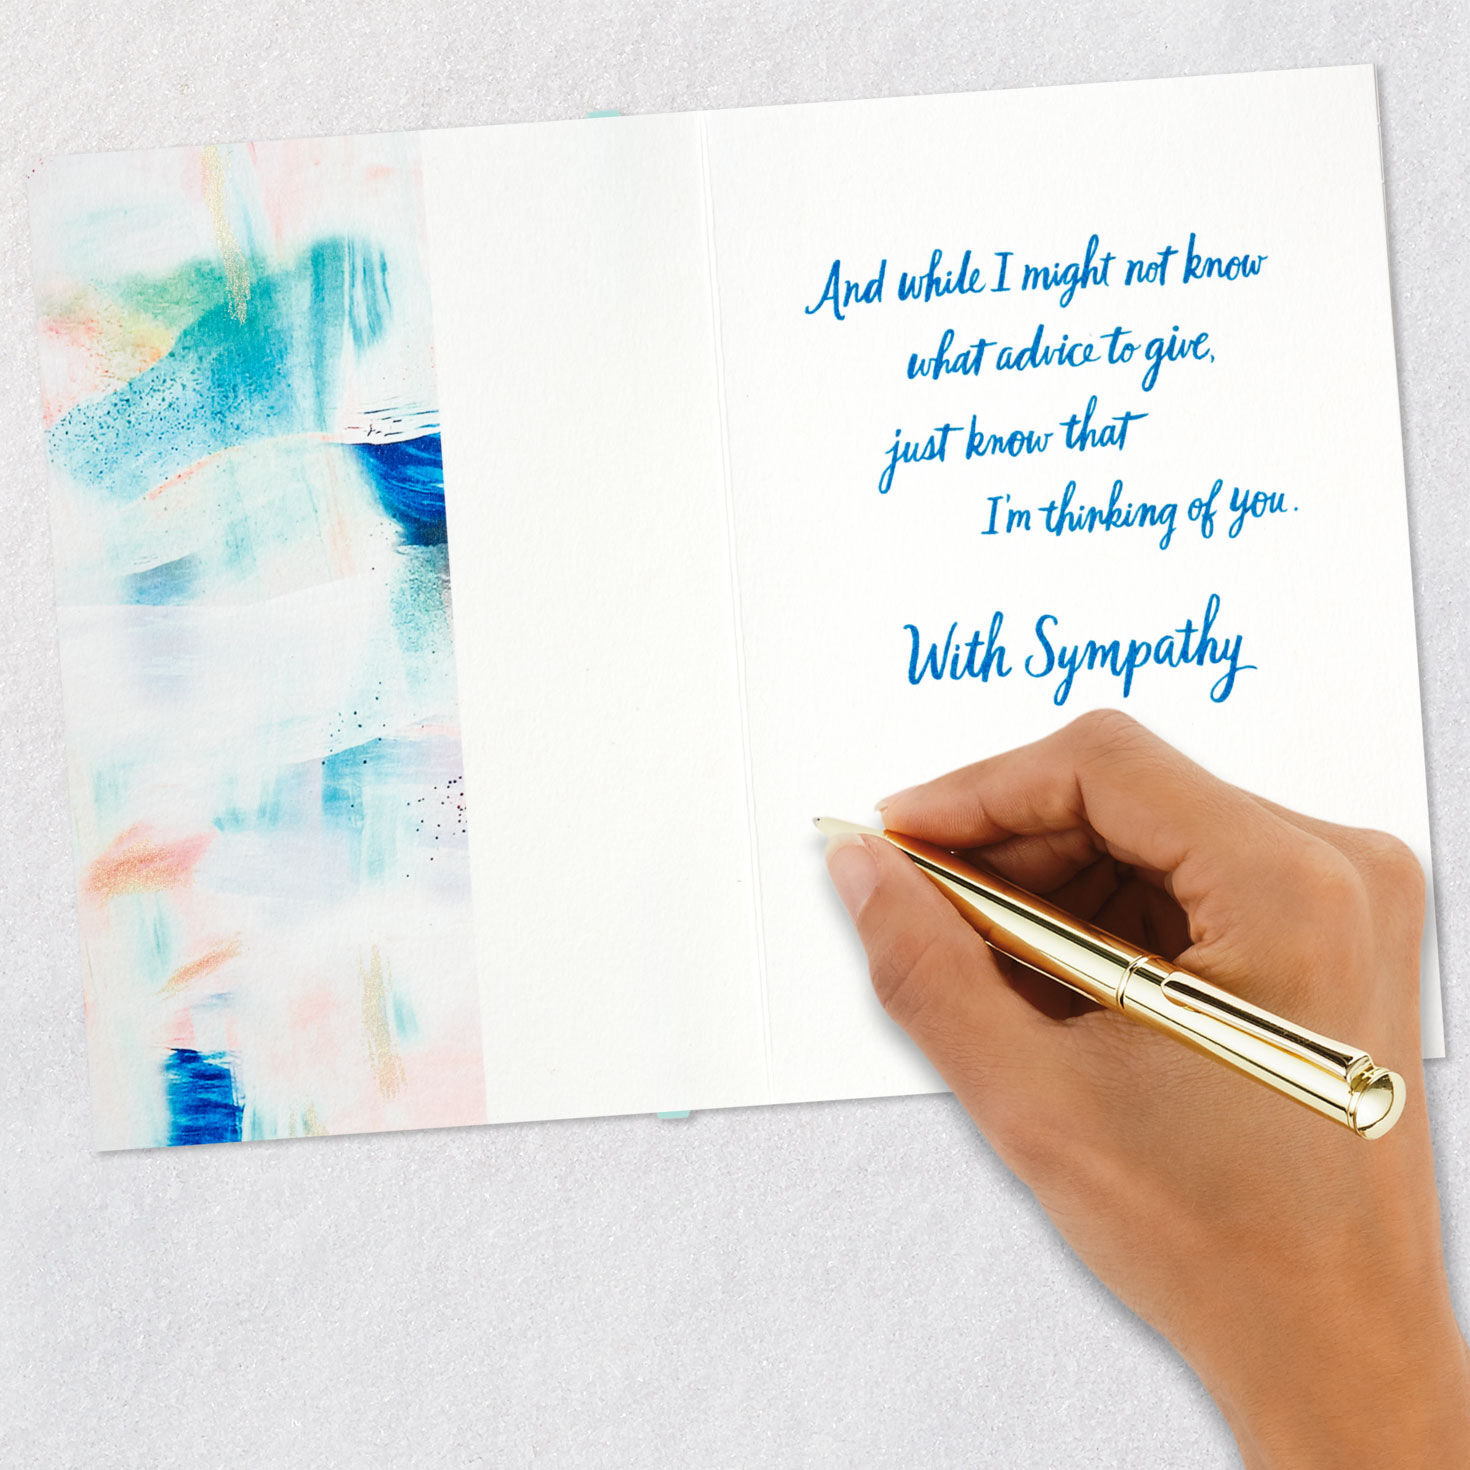 And while I might not know
what advice to give,
just know that
I'm thinking of you.
With Sympathy